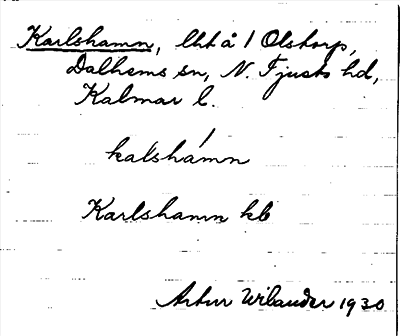 Karlshamn, lht å 1 Olstorp,
Dalhems sn, N. Tjusts hd,
Kalmar l.
kalshámn
Karlshamn kb
Artur Wilander 1930